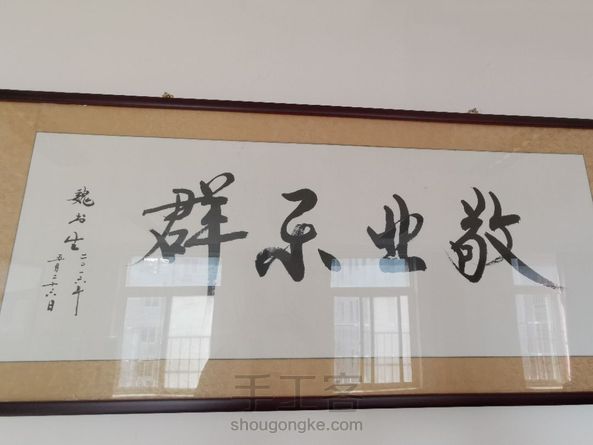 敬业乐群
魏书生
二〇一六年
五月二十六日
手工客
shougongke.com